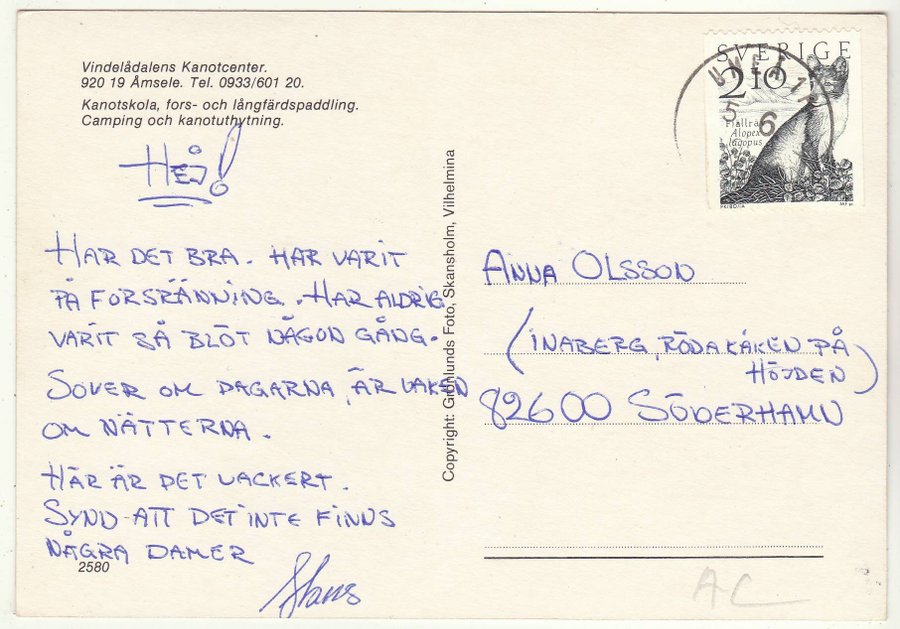 Vindelådalens Kanotcenter.
920 19 Åmsele. Tel. 0933/601 20.
Kanotskola, fors- och långfärdspaddling.
Camping och kanotuthytning.
HEJ!
HAR DET BRA. HAR VARIT
PÅ FORSRÄNNING. HAR ALDRIG
VARIT SÅ BLÖT NÅGON GÅNG.
SOVER OM DAGARNA, ÄR VAKEN
OM NÄTTERNA.
HÄR ÄR DET VACKERT.
SYND ATT DET INTE FINNS
NÅGRA DAMER
Hans
2580
Copyright: Grönlunds Foto, Skansholm, Vilhelmina
SVERIGE
2 10
Fjällrä
Alopex
lagopus
5 6
ANNA OLSSON
(INABERG, RÖDA KÅKEN PÅ
HÖJDEN)
82600 SÖDERHAMN
AC